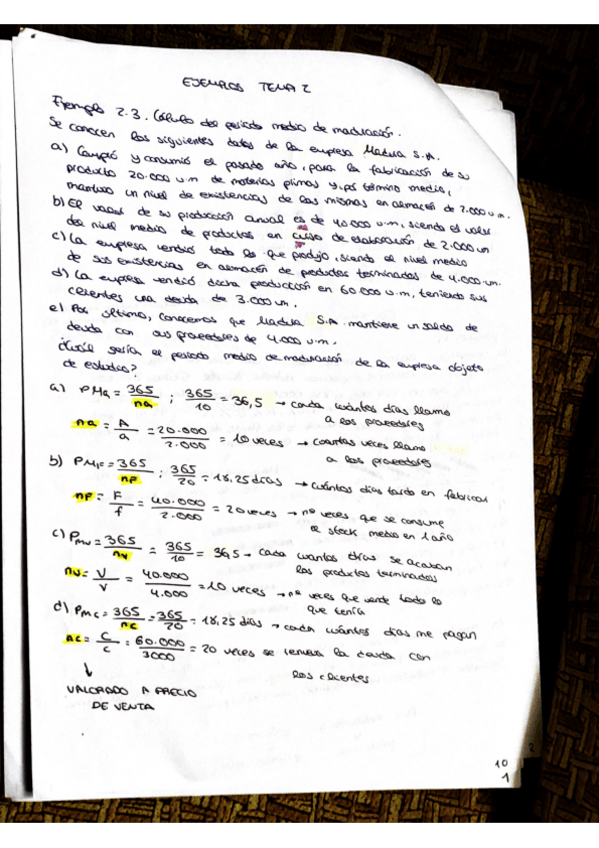 EJEMPLOS TEMA 2
Ejemplo 2.3. Cálculo del periodo medio de maduración.
Se conocen los siguientes datos de la empresa Madura S.A.
a) Compró y consumió el pasado año, para la fabricación de su
producto 20.000 u.m de materias primas y, por término medio,
mantuvo un nivel de existencias de las mismas en almacén de 2.000 u.m.
b) El valor de su producción anual es de 40.000 u.m, siendo el valor
del nivel medio de productos en curso de elaboración de 2.000 um
c) La empresa vendió todo lo que produjo, siendo el nivel medio
de sus existencias en almacén de productos terminados de 4.000 um.
d) La empresa vendió dicha producción en 60.000 u.m, teniendo sus
clientes una deuda de 3.000 um.
e) Por último, conocemos que Madura S.A. mantiene un saldo de
deuda con sus proveedores de 4.000 u.m.
¿Cuál sería el periodo medio de maduración de la empresa objeto
de estudio?
a) PMa = 365/na ; 365/10 = 36,5 → cada cuántos días llamo
a los proveedores
na = A/a = 20.000/2.000 = 10 veces → cuantas veces llamo
a los proveedores
b) PMF = 365/nF ; 365/20 = 18,25 días → cuántos días tardo en fabricar
nF = F/f = 40.000/2.000 = 20 veces → nº veces que se consume
el stock medio en 1 año
c) PMV = 365/nv = 365/10 = 36,5 → cada cuantos días se acaban
los productos terminados
nv = V/v = 40.000/4.000 = 10 veces → nº veces que vende todo lo
que tenía
d) PMC = 365/nc = 365/20 = 18,25 días → cada cuántos días me pagan
nc = C/c = 60.000/3000 = 20 veces se renueva la deuda con
los clientes
↓
VALORADO A PRECIO
DE VENTA
2
10
1